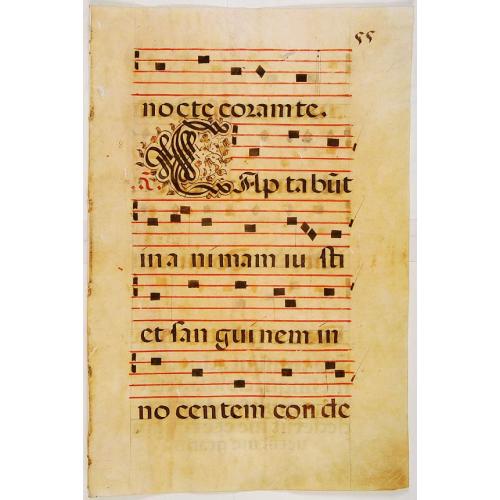 55
nocte coram te.
a. CAptabūt
in animam iusti
et sanguinem in
nocentem conde